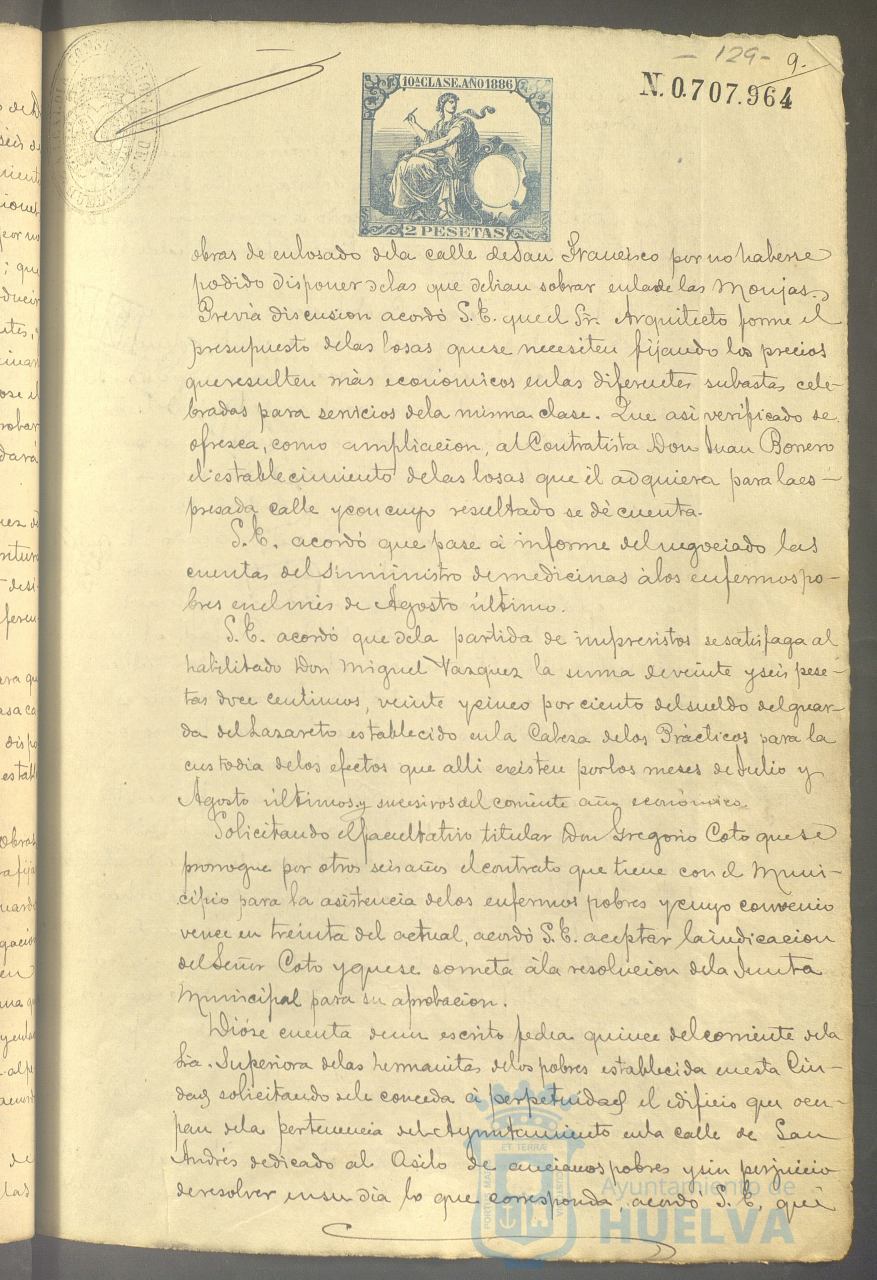 - 129 -
9.
10ª CLASE. AÑO 1886
N. 0.707.964
2 PESETAS
obras de enlosado dela calle deSan Francisco por no haberse
podido disponer delas que debian sobrar enlade las Monjas.
Previa discusion acordó S.E. queel Sr. Arquitecto forme el
presupuesto delas losas quese necesiten fijando los precios
queresulten más económicos enlas diferentes subastas cele-
bradas para servicios dela misma clase. Que asi verificado se
ofrezca, como ampliacion, al Contratista Don Juan Borrero
el establecimiento delas losas que él adquiera para laes-
presada calle y con cuyo resultado se dé cuenta.
S.E. acordó que pase á informe del negociado las
cuentas del suministro demedicinas álos enfermos po-
bres enel mes de Agosto último.
S.E. acordó que dela partida de imprevistos sesatisfaga al
habilitado Don Miguel Vazquez la suma deveinte y seis pese-
tas doce centimos, veinte y cinco por ciento del sueldo del guar-
da del Lazareto establecido enla Cabeza delos Prácticos para la
custodia delos efectos que alli existen porlos meses de Julio y
Agosto últimos y sucesivos del corriente año económico.
Solicitando el facultativo titular Don Gregorio Coto quese
prorrogue por otros seis años el contrato que tiene con el Muni-
cipio para la asistencia delos enfermos pobres y cuyo convenio
vence en treinta del actual, acordó S.E. aceptar la indicacion
del Señor Coto y quese someta ála resolucion dela Junta
Municipal para su aprobacion.
Dióse cuenta deun escrito fecha quince del corriente dela
Sra. Superiora delas hermanitas delos pobres establecida enesta Ciu-
dad solicitando sele conceda á perpetuidad el edificio que ocu-
pan dela pertenencia del Ayuntamiento enla calle de San
Andrés dedicado al Asilo de ancianos pobres y sin perjuicio
deresolver ensu dia lo que corresponda, acordó S.E. que
Ayuntamiento de
HUELVA